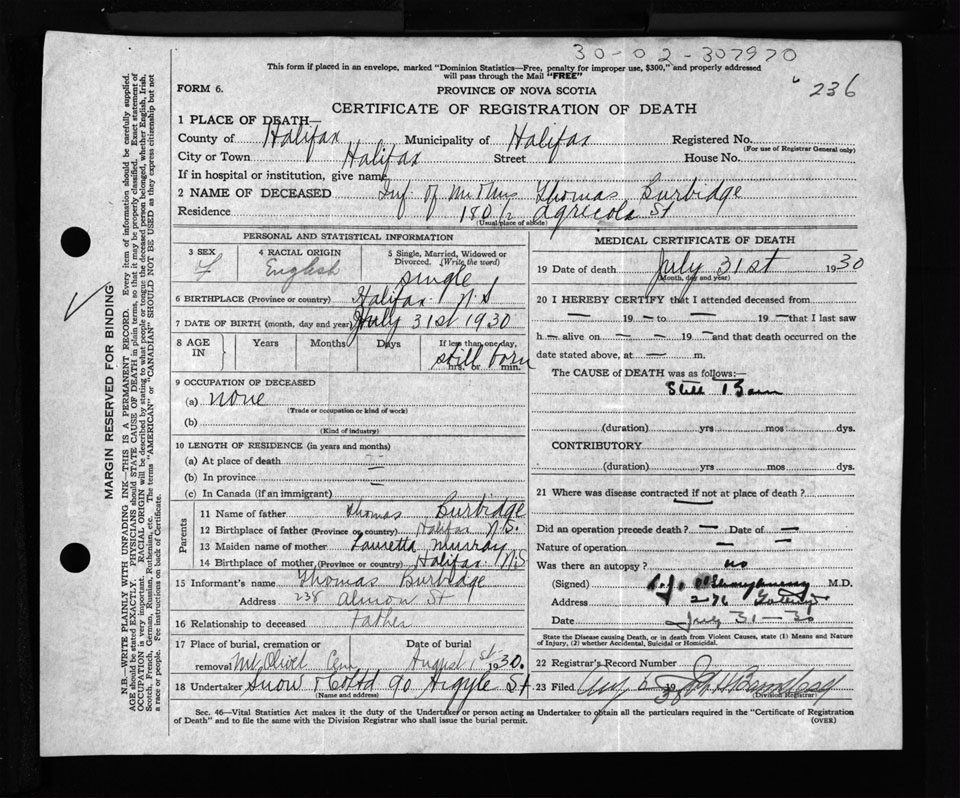 30-02-307970
This form if placed in an envelope, marked "Dominion Statistics—Free, penalty for improper use, $300," and properly addressed
will pass through the Mail "FREE"
236
FORM 6.
PROVINCE OF NOVA SCOTIA
CERTIFICATE OF REGISTRATION OF DEATH
1 PLACE OF DEATH—
County of Halifax Municipality of Halifax Registered No.
(For use of Registrar General only)
City or Town Halifax Street House No.
If in hospital or institution, give name
2 NAME OF DECEASED Inf. of Mr & Mrs Thomas Burbidge
Residence 180 1/2 Agricola St
(Usual place of abode)
PERSONAL AND STATISTICAL INFORMATION
3 SEX F
4 RACIAL ORIGIN English
5 Single, Married, Widowed or Divorced. (Write the word) single
6 BIRTHPLACE (Province or country) Halifax N.S
7 DATE OF BIRTH (month, day and year) July 31st 1930
8 AGE IN Years Months Days If less than one day, hrs. or min. still born
9 OCCUPATION OF DECEASED
(a) none
(Trade or occupation or kind of work)
(b)
(Kind of industry)
10 LENGTH OF RESIDENCE (in years and months)
(a) At place of death —
(b) In province —
(c) In Canada (if an immigrant)
Parents
11 Name of father Thomas Burbidge
12 Birthplace of father (Province or country) Halifax N.S.
13 Maiden name of mother Murray
14 Birthplace of mother (Province or country) Halifax N.S
15 Informant's name Thomas Burbidge
Address 238 Almon St
16 Relationship to deceased Father
17 Place of burial, cremation or removal Mt Olivet Cem Date of burial August 1st 1930.
18 Undertaker Snow & Co Ltd 90 Argyle St
(Name and address)
MEDICAL CERTIFICATE OF DEATH
19 Date of death July 31st 1930
(Month, day and year)
20 I HEREBY CERTIFY that I attended deceased from
— 19 — to — 19 — that I last saw
h — alive on — 19 — and that death occurred on the
date stated above, at — m.
The CAUSE of DEATH was as follows:—
Still Born
(duration) yrs mos dys.
CONTRIBUTORY
(duration) yrs mos dys.
21 Where was disease contracted if not at place of death?
Did an operation precede death? — Date of —
Nature of operation —
Was there an autopsy? no
(Signed) M.D.
Address 276
Date July 31-30
State the Disease causing Death, or in death from Violent Causes, state (1) Means and Nature
of Injury, (2) whether Accidental, Suicidal or Homicidal.
22 Registrar's Record Number
23 Filed Aug
(Division Registrar)
Sec. 46—Vital Statistics Act makes it the duty of the Undertaker or person acting as Undertaker to obtain all the particulars required in the "Certificate of Registration
of Death" and to file the same with the Division Registrar who shall issue the burial permit.
(OVER)
MARGIN RESERVED FOR BINDING
N.B.—WRITE PLAINLY WITH UNFADING INK—THIS IS A PERMANENT RECORD. Every item of information should be carefully supplied.
AGE should be stated EXACTLY. PHYSICIANS should STATE CAUSE OF DEATH in plain terms, so that it may be properly classified. Exact statement of
OCCUPATION is very important. RACIAL ORIGIN will be described by stating to what people or tongue the deceased person belonged, whether English, Irish,
Scotch, French, German, Russian, Ruthenian, etc. The terms "AMERICAN" or "CANADIAN" SHOULD NOT BE USED as they express citizenship but not
a race or people. Fee instructions on back of Certificate.